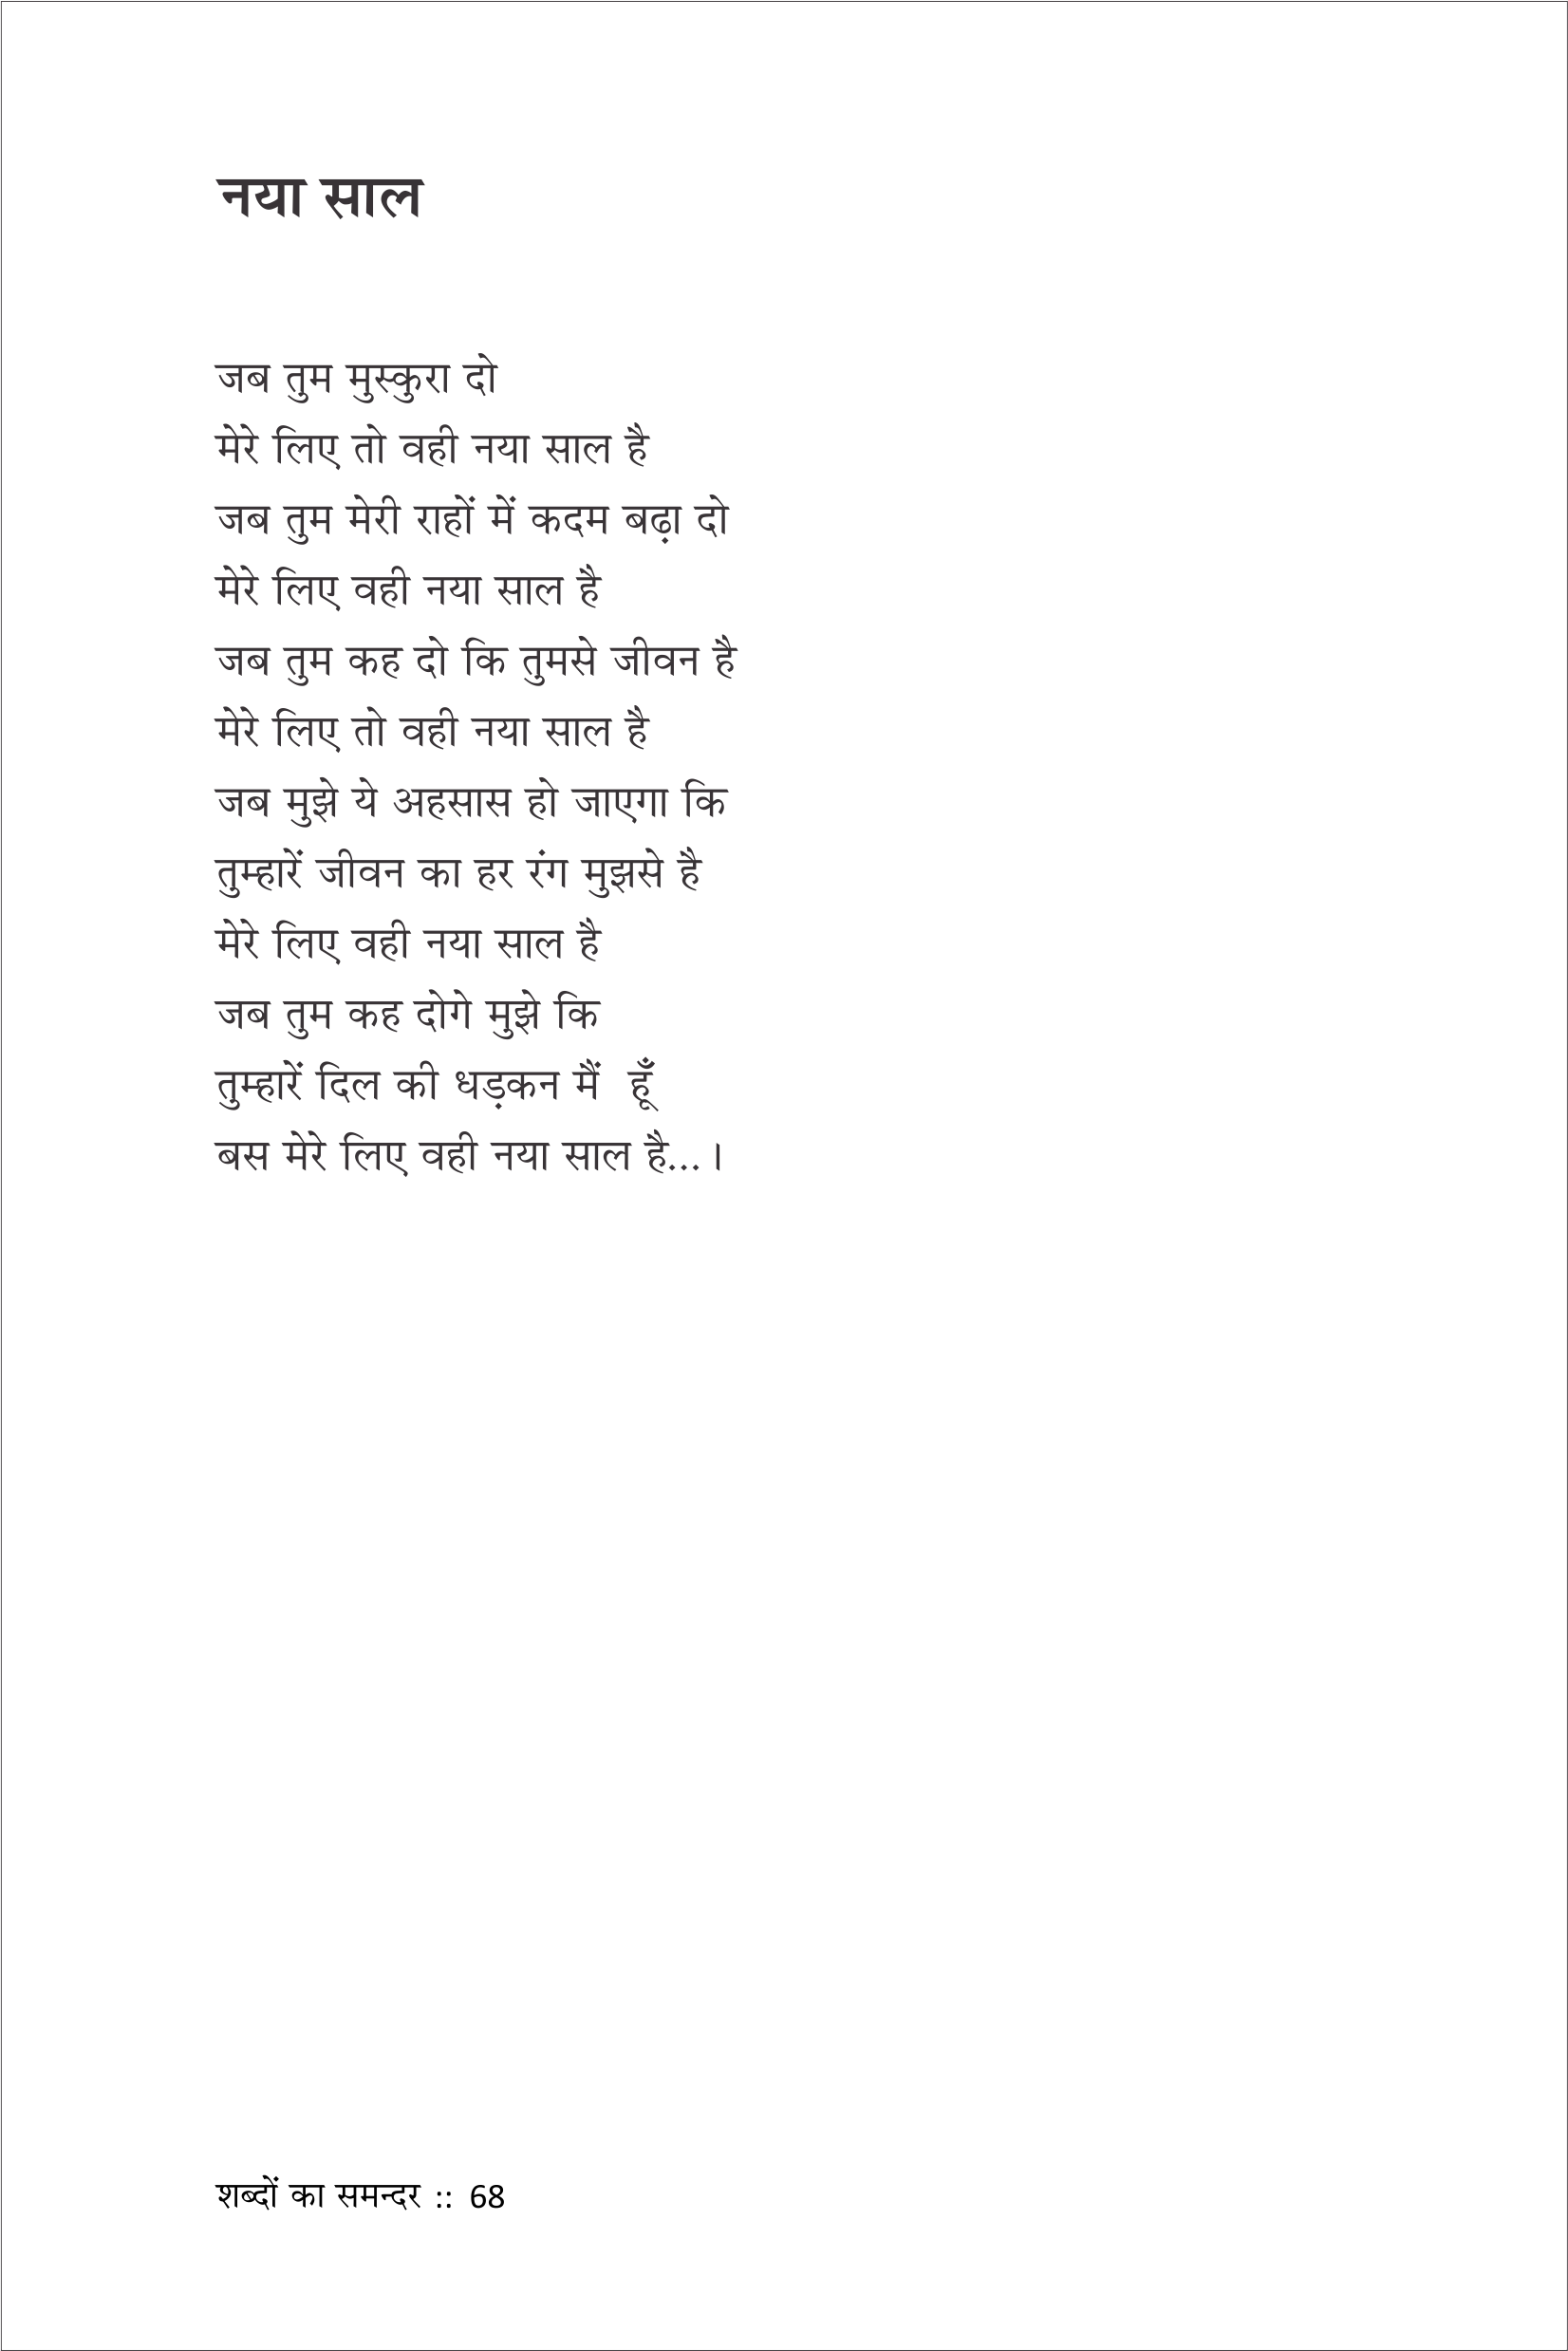 नया साल
जब तुम मुस्कुरा दो
मेरे लिए तो वही नया साल है
जब तुम मेरी राहों में कदम बढ़ा दो
मेरे लिए वही नया साल है
जब तुम कह दो कि तुमसे जीवन है
मेरे लिए तो वही नया साल है
जब मुझे ये अहसास हो जाएगा कि
तुम्हारें जीवन का हर रंग मुझसे है
मेरे लिए वही नया साल है
जब तुम कह दोगे मुझे कि
तुम्हारें दिल की धड़कन मैं  हूँ
बस मेरे लिए वही नया साल है...।
शब्दों का समन्दर :: 68